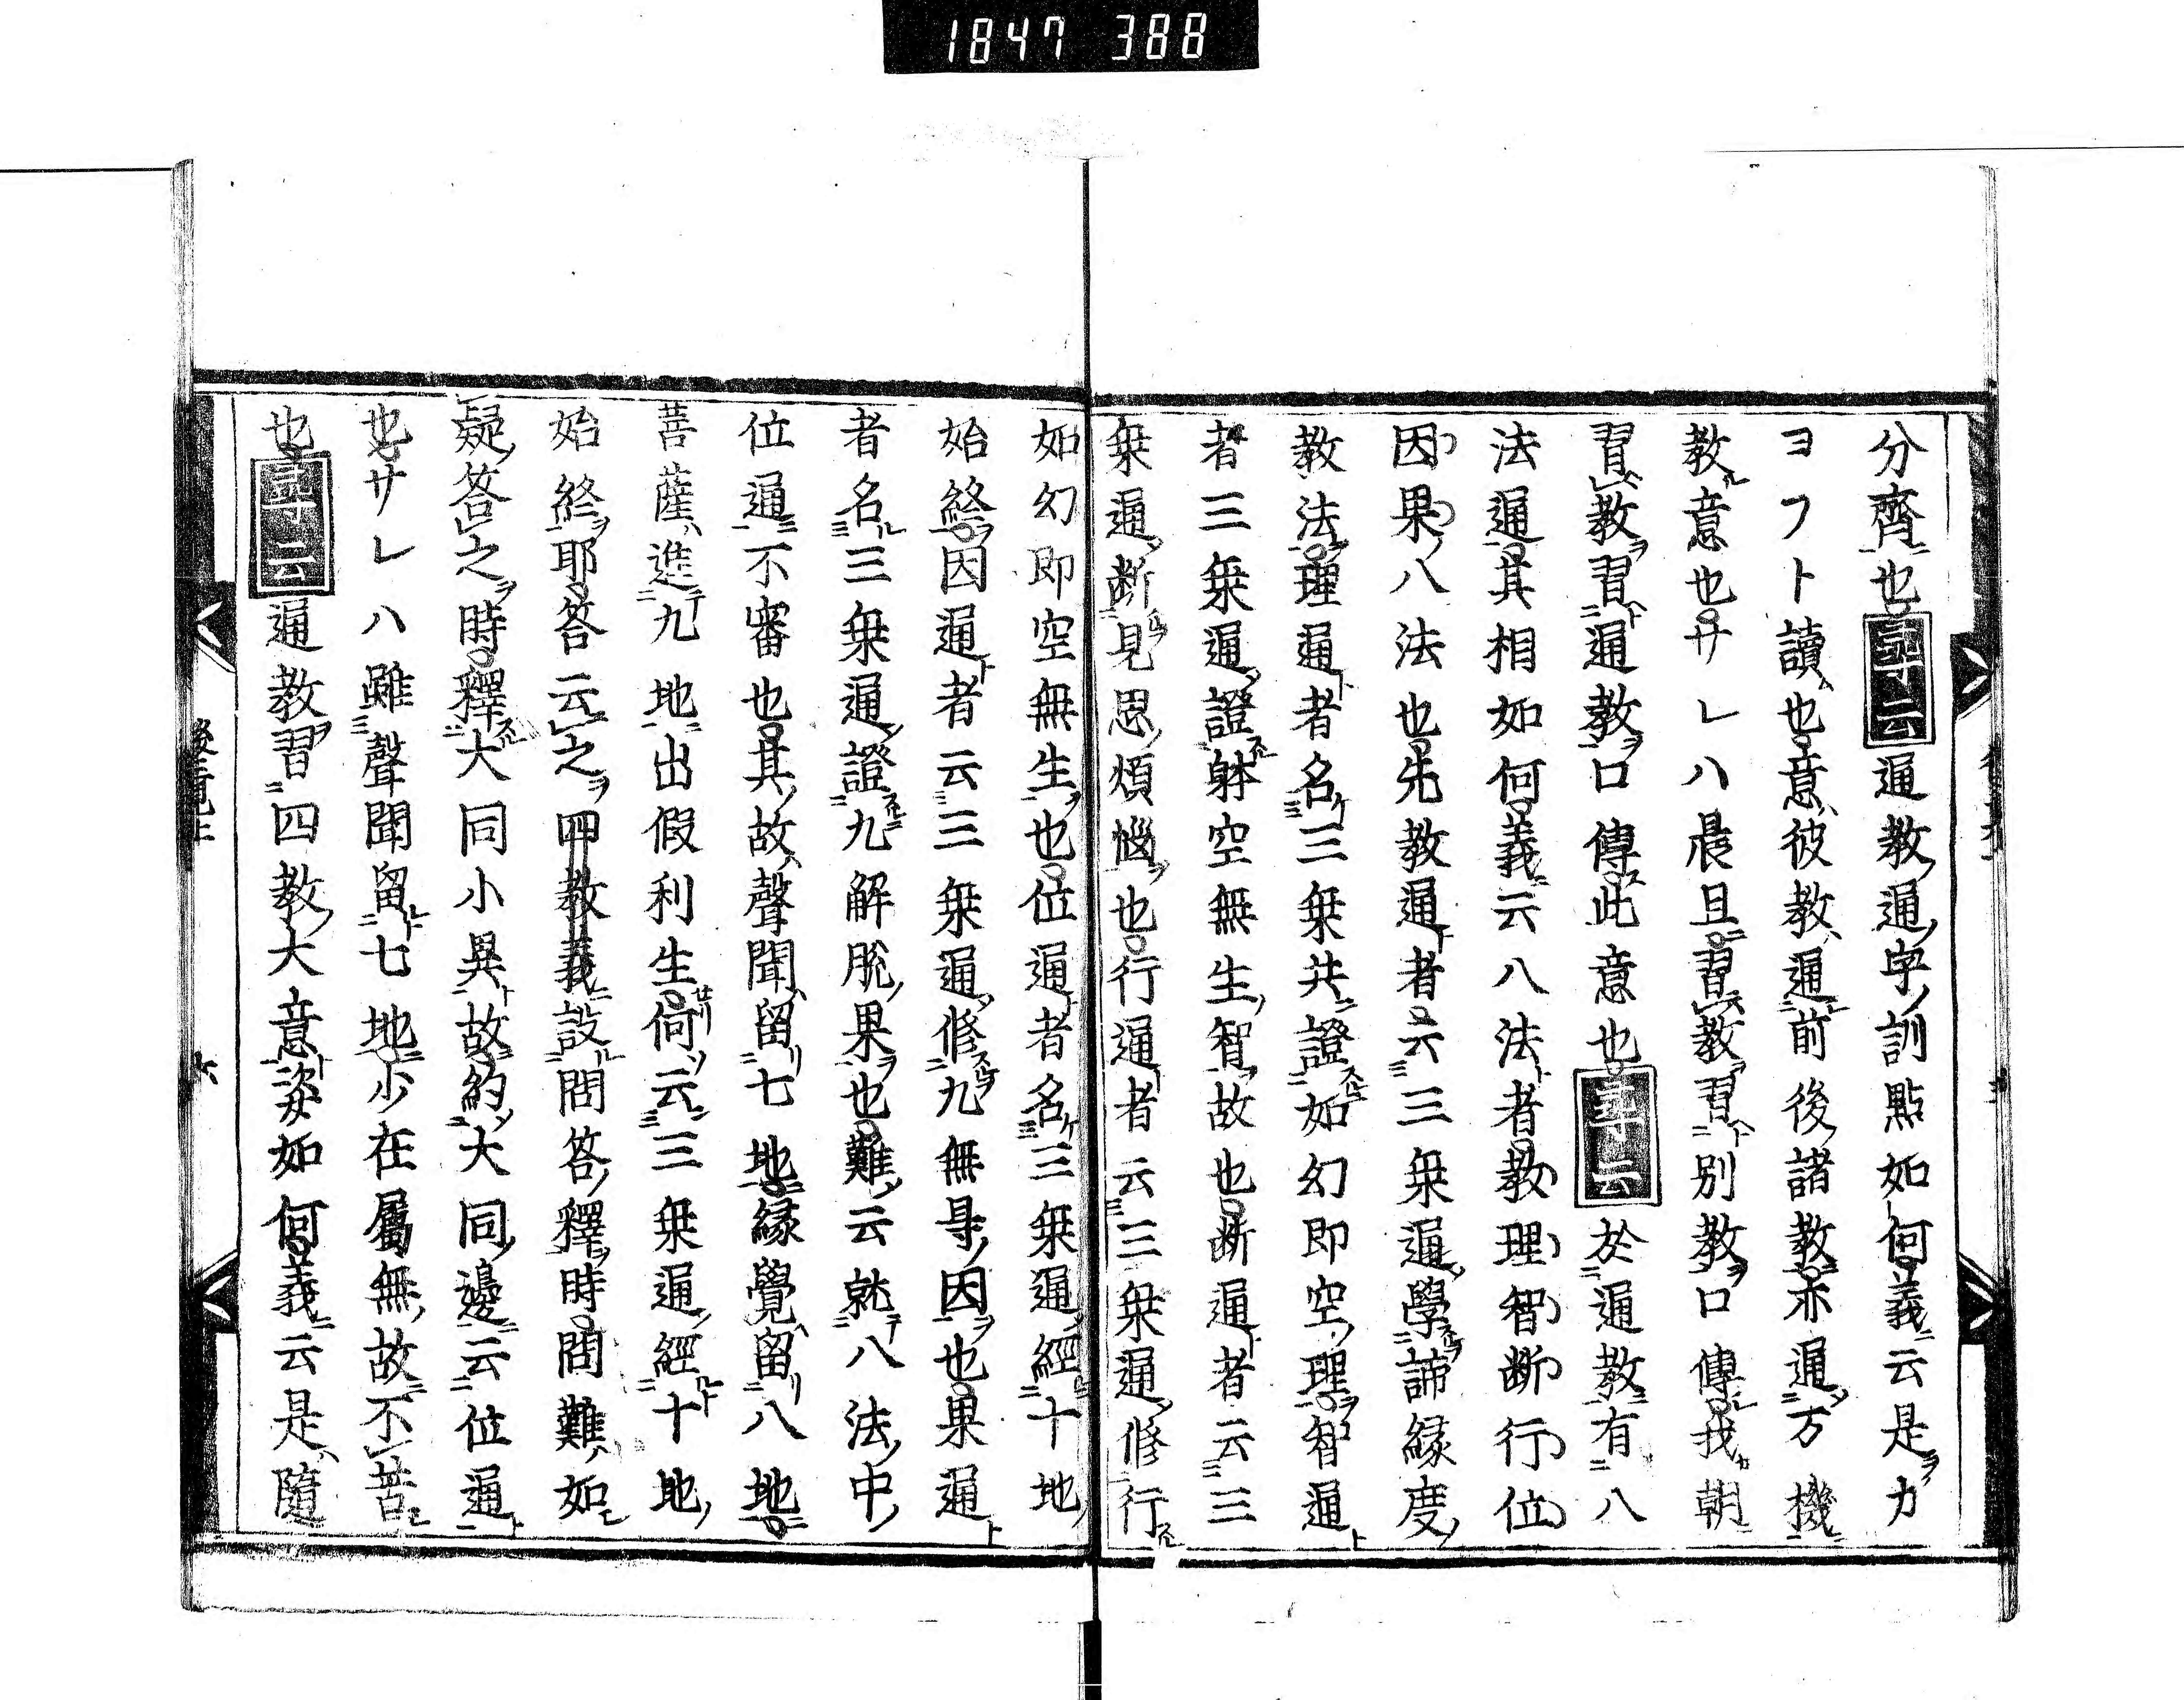 1847 388
分齊也尋云通教通字訓點如何義云是カ
ヨフト讀也意彼教通前後諸教亦通万機
教意也サレハ晨旦習教習別教口傳我朝
習教習通教口傳此意也尋云於通教有八
法通其相如何義云八法者教理智斷行位
因果八法也先教通者云三乗通學諦縁度
教法理通者名三乗共證如幻即空理智通
者三乗通證躰空無生智故也斷通者云三
乗通断見思煩惱也行通者云三乗通修行
如幻即空無生也位通者名三乗通經十地
始終因通者云三乗通修九無㝵因也果通
者名三乗通證九解脱果也難云就八法中
位通不審也其故聲聞留七地縁覺留八地
菩薩進九地出假利生何云三乗通經十地
始終耶答云之四教義設問答釋時問難如
疑答之時釋大同小異故約大同邊云位通
也サレハ雖聲聞留七地少在屬無故不苦
也尋云通教習四教大意姿如何義云是隨